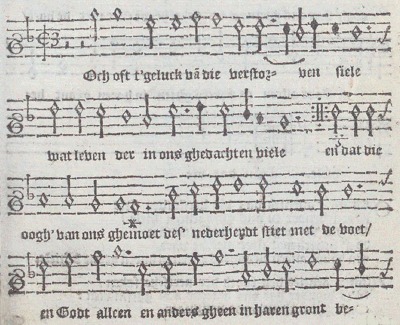 Och oft t'geluck vā die verstor- ven siele
wat leven der in ons ghedachten viele en dat die
oogh' van ons ghemoet des' nederheydt stiet met de voet/
en Godt alleen en anders gheen in haren gront be-